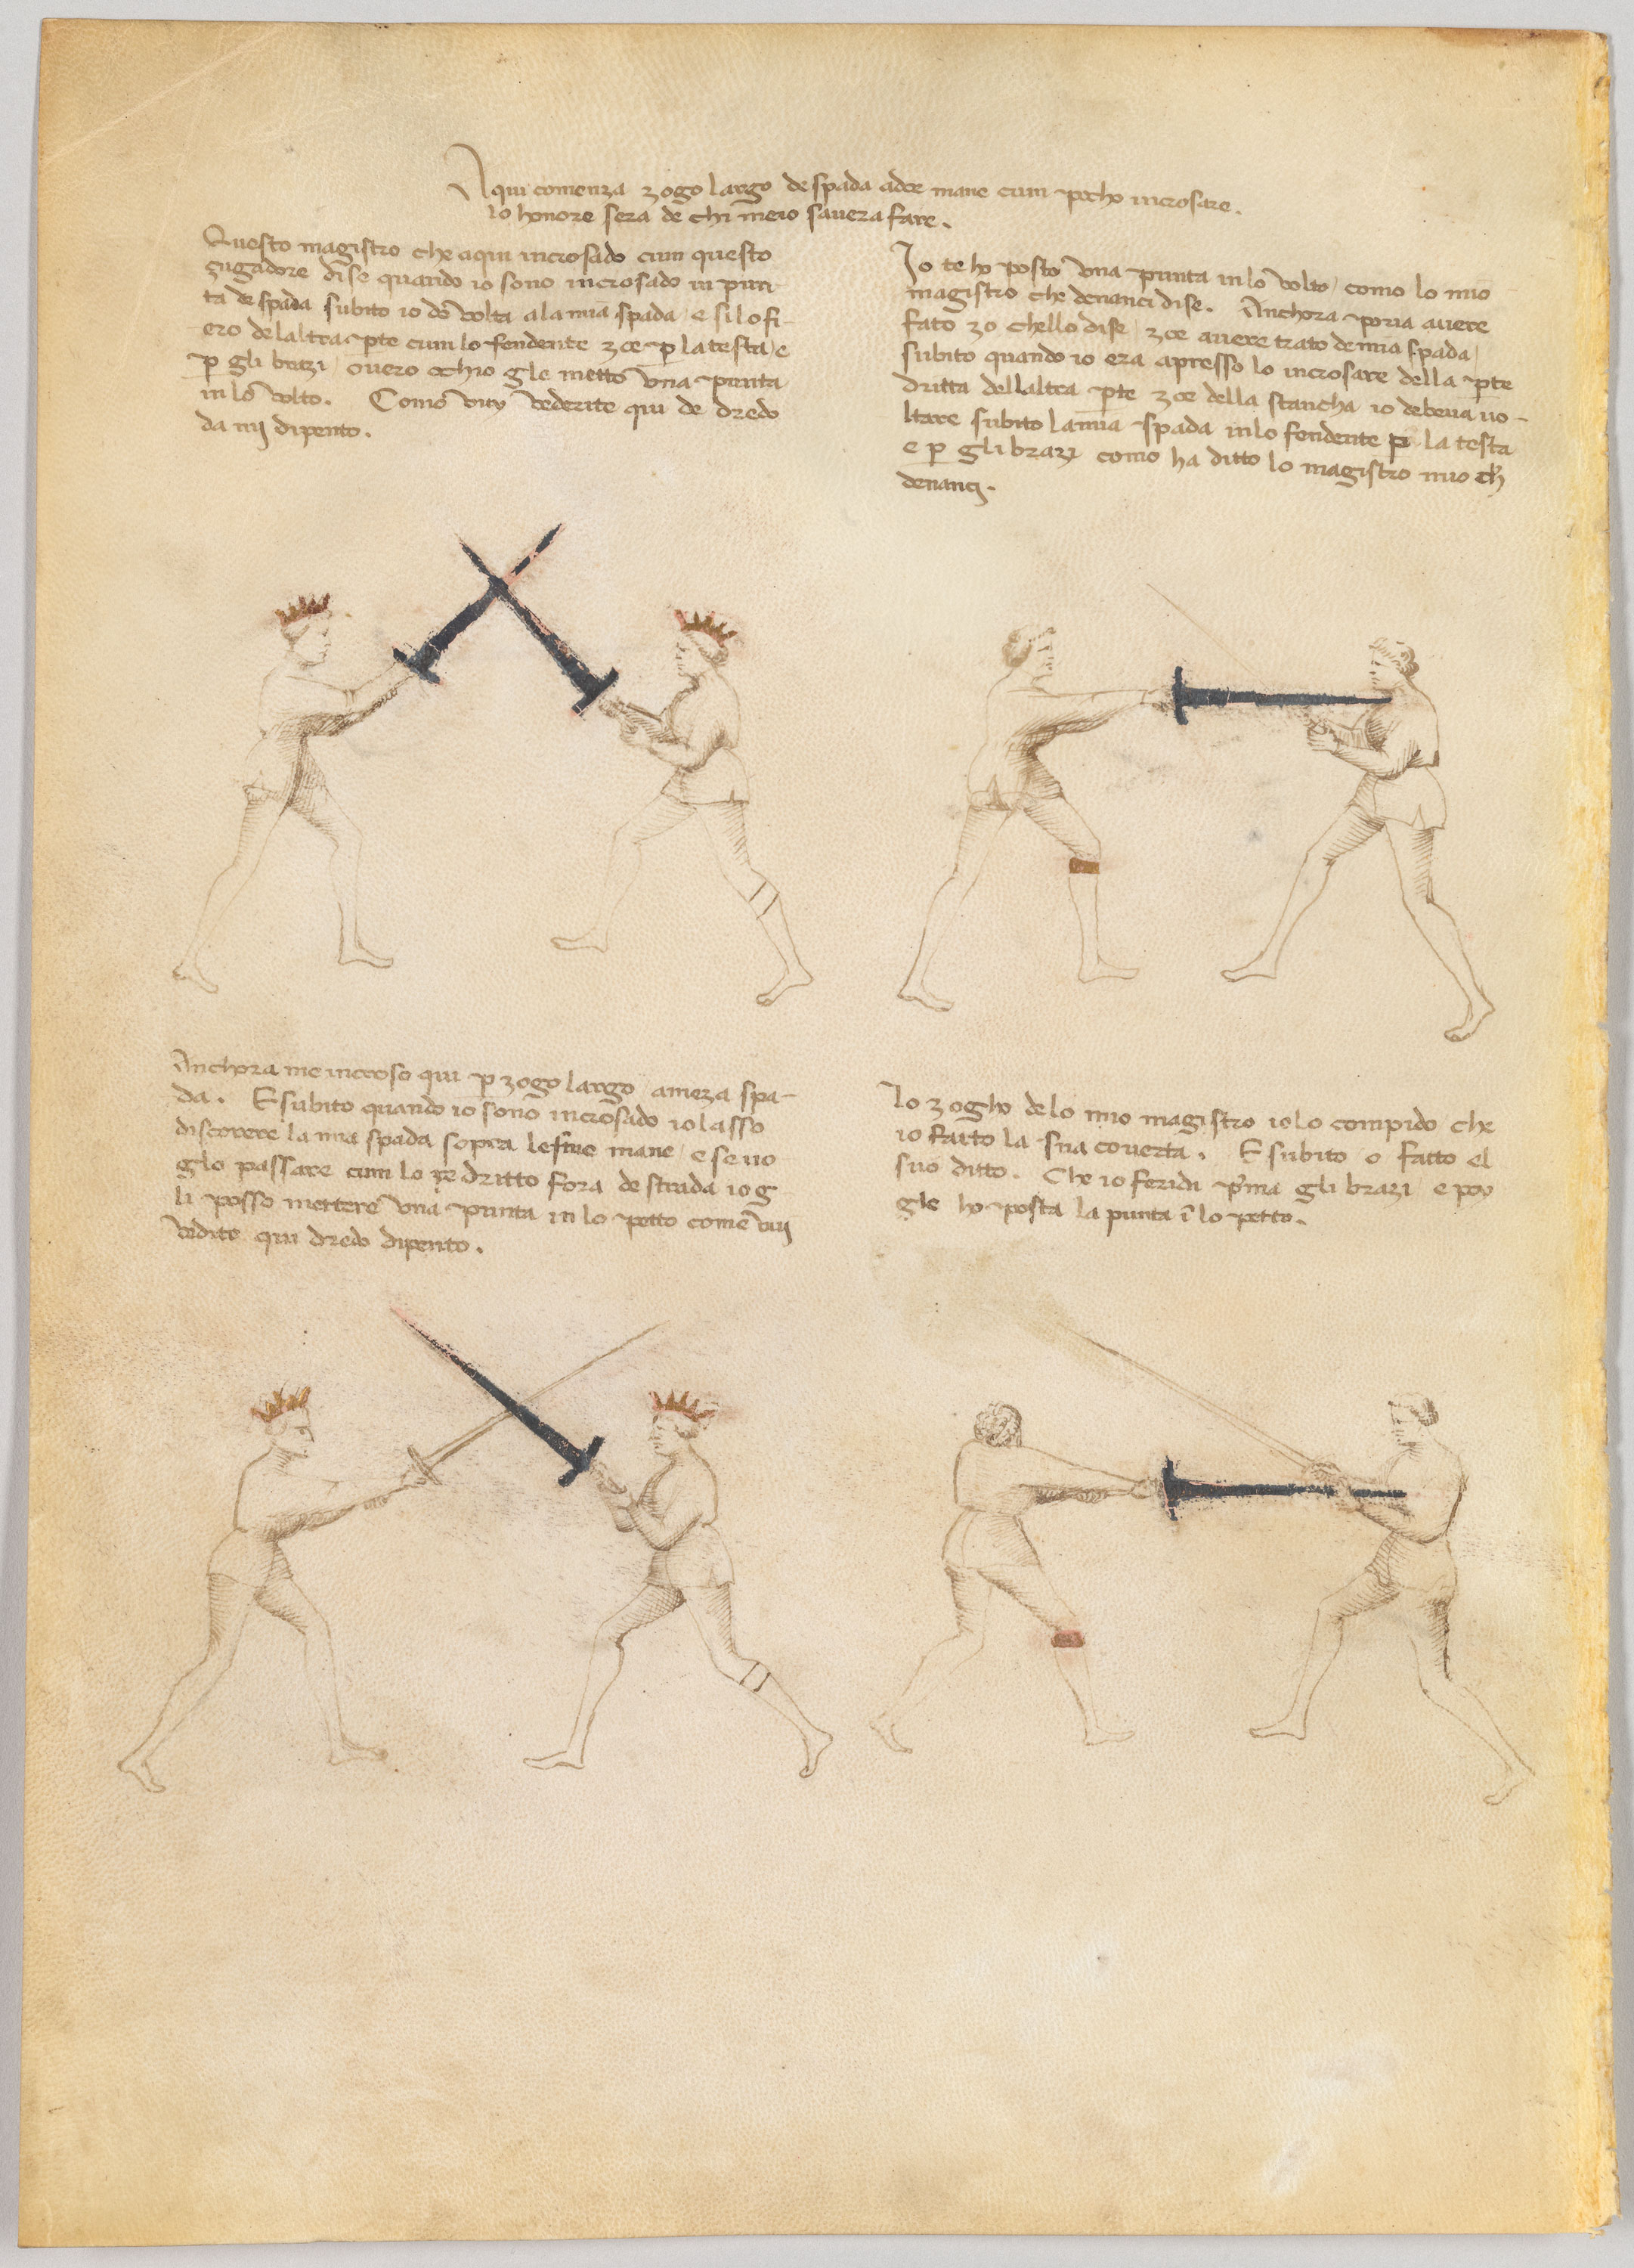 Aqui comenza zogo largo de spada adoe mane cum pocho incrosare.
lo honore sera de chi meio savera fare.
Questo magistro che aqui incrosado cum questo
zugadore dise quando io sono incrosado in pun-
ta de spada subito io dō volta ala mia spada / e silo fi-
ero de laltra pte cum lo fendente zoe p la testa / e
p gli brazi / overo ochio gle metto una punta
in lo volto. Como vuy vederite qui de dredo
da mi dipento.
Io te ho posto una punta in lo volto / como lo mio
magistro che denanci dise. Anchora poria avere
fato zo chello dise / zoe avere trato de mia spada /
subito quando io era apresso lo incrosare della pte
dritta dellaltra pte zoe della stancha io debeva vo-
ltare subito la mia spada in lo fendente p la testa
e p gli brazi como ha ditto lo magistro mio ch
denanci.
Anchora me incroso qui p zogo largo a meza spa-
da. E subito quando io sono incrosado io lasso
discorere la mia spada sopra le sue mane / e se vo
glo passare cum lo pe dritto fora de strada io g
li posso mettere una punta in lo petto come vuii
vedite qui dredo dipento.
Lo zogho de lo mio magistro io lo compido che
io fatto la sua coverta. E subito o fatto el
suo ditto. Che io feridi p'ma gli brazi e poy
gle ho posta la punta ī lo petto.